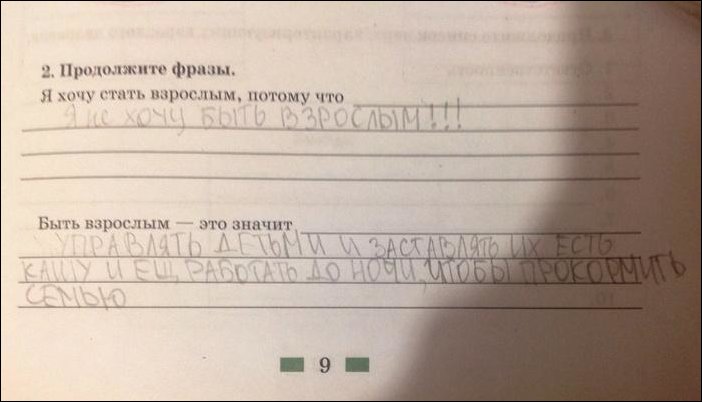 2. Продолжите фразы.
Я хочу стать взрослым, потому что
Я не хочу БЫТЬ ВЗРОСЛЫМ!!!
Быть взрослым — это значит
УПРАВЛЯТЬ ДЕТЬМИ И ЗАСТАВЛЯТЬ ИХ ЕСТЬ
КАШУ И ЕЩ РАБОТАТЬ ДО НОЧИ, ЧТОБЫ ПРОКОРМИТЬ
СЕМЬЮ
9